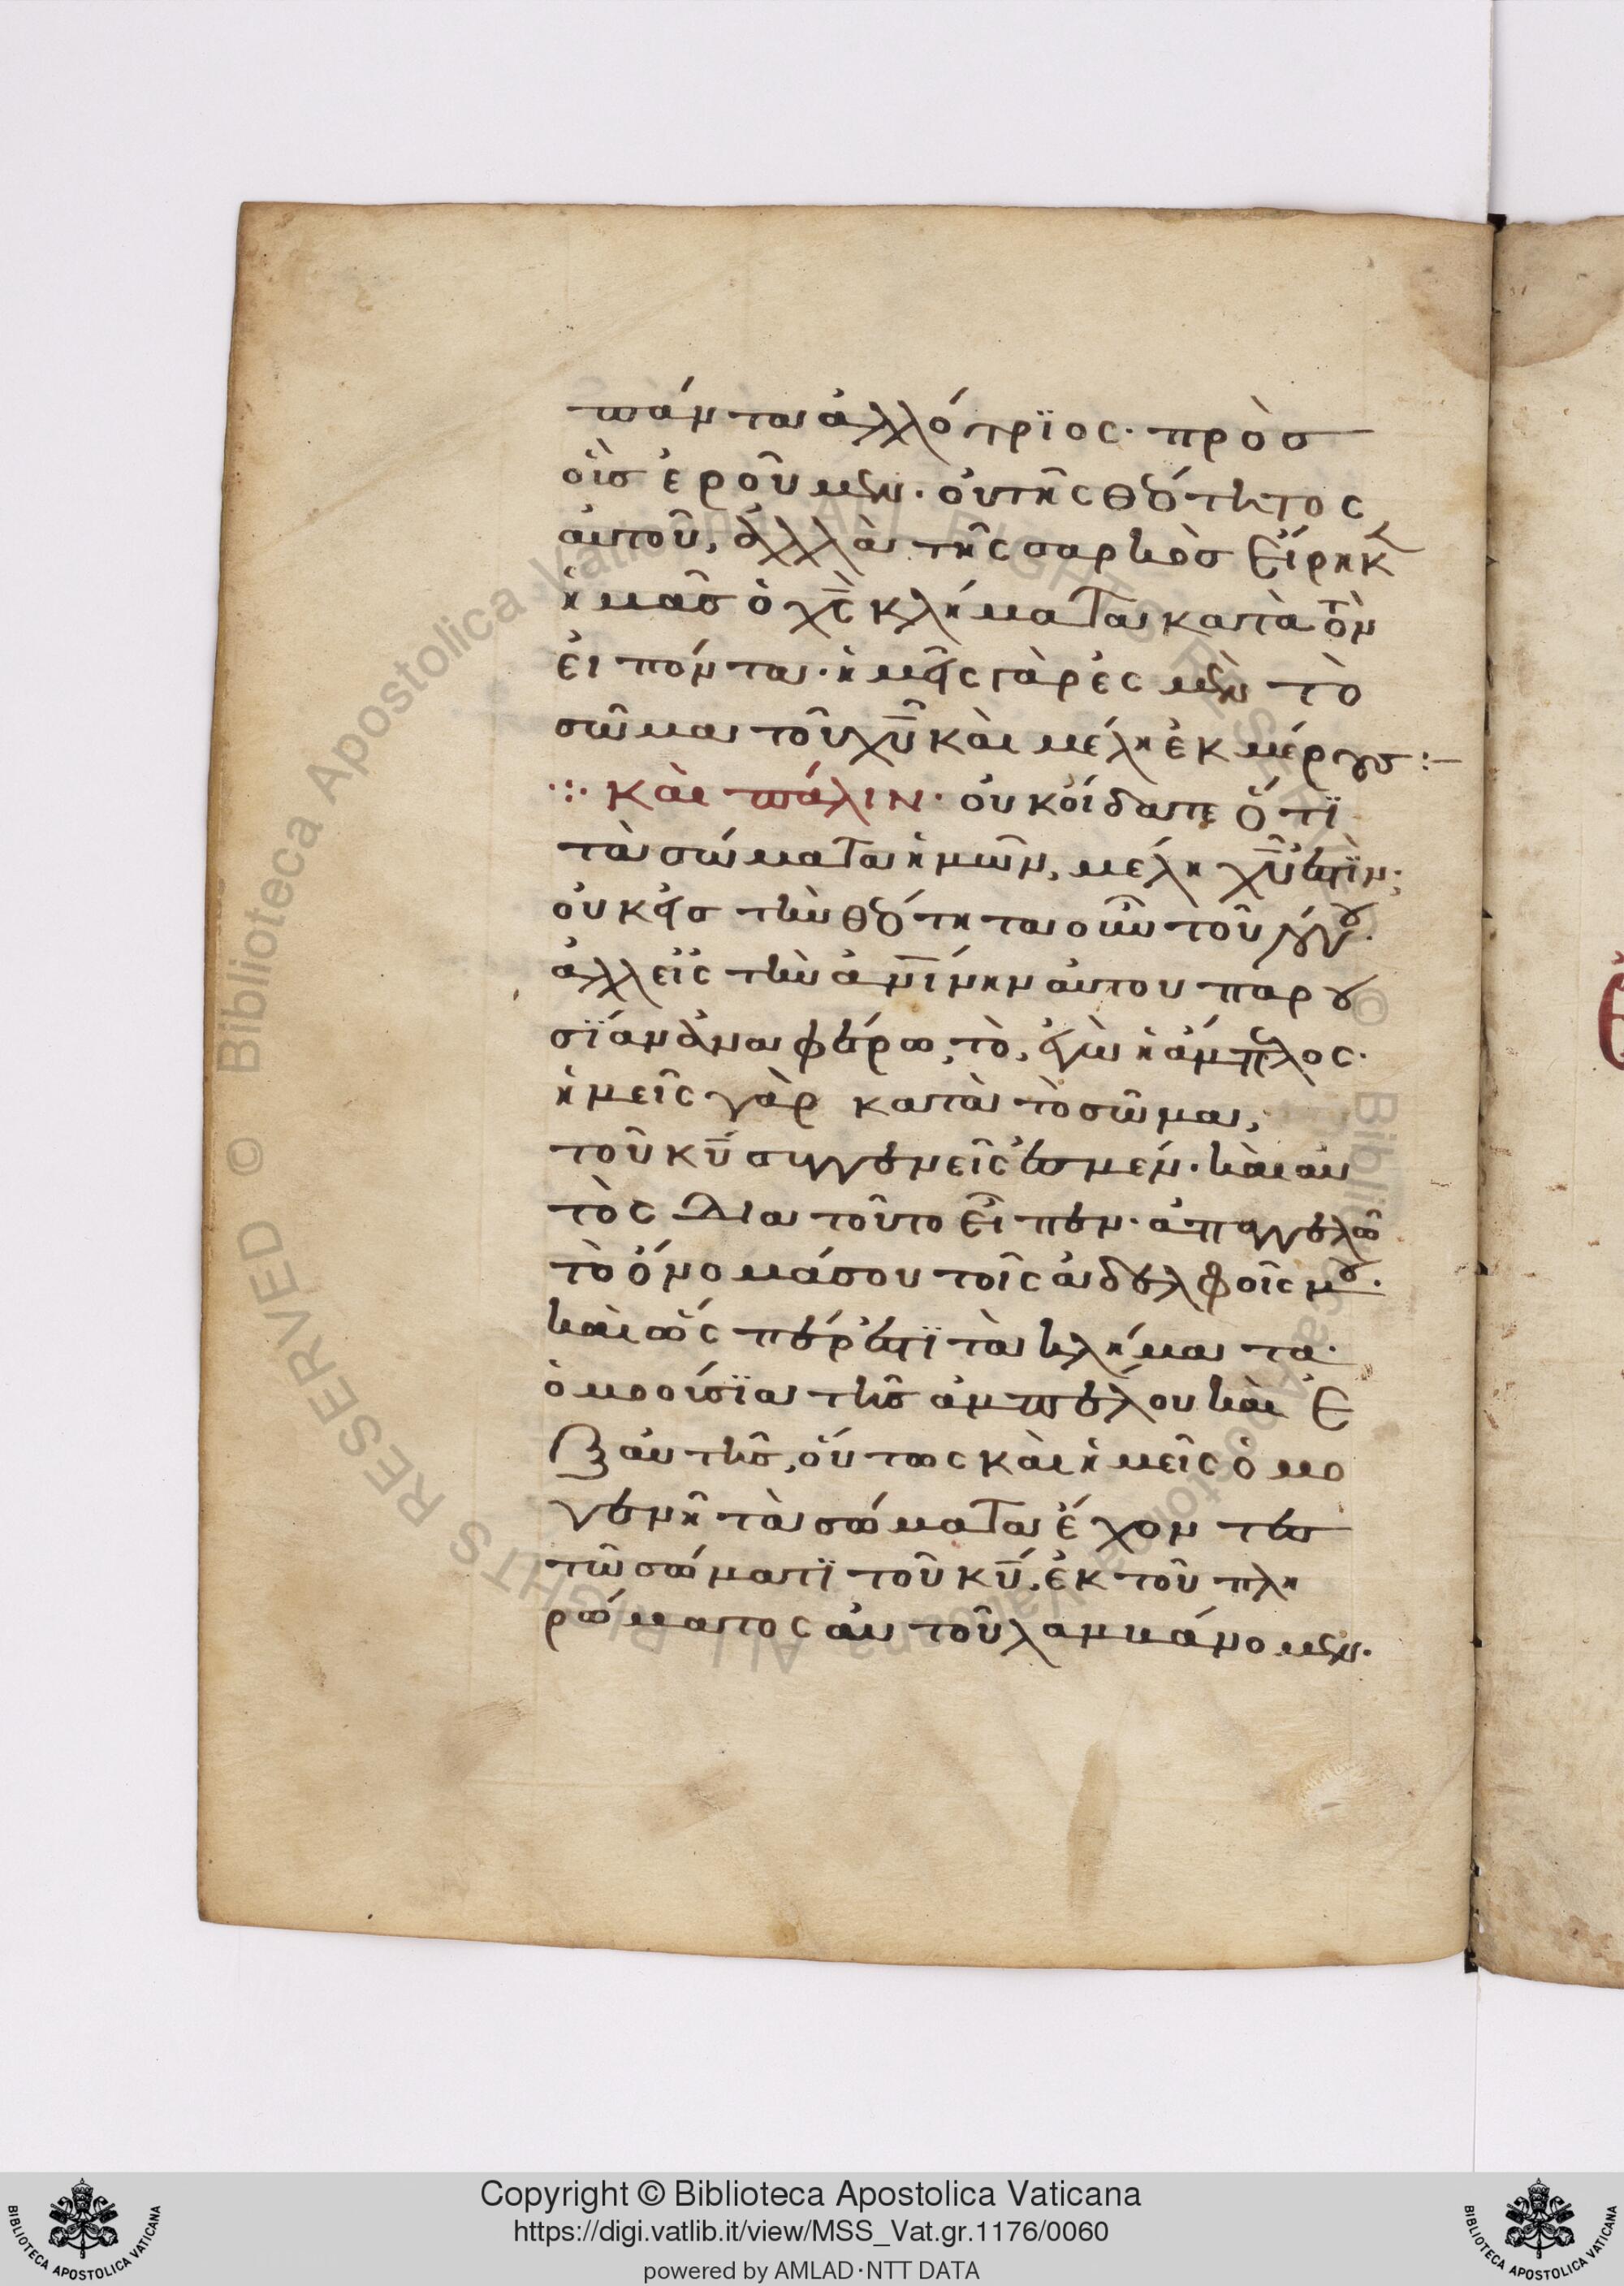 πάντα ἀλλότρϊος· πρὸσ
οἷσ ἐροῦμεν· οὐ τῆς θεότητος
αὐτοῦ, ἀλλὰ τῆς σαρκὸσ εἴρηκ
ἡμᾶσ ὁ χς κλήματα κατὰ τὸν
εἰπόντα· ἡμεῖς γὰρ ἐσμὲν τὸ
σῶμα τοῦ χυ καὶ μέλη ἐκ μέρουσ:–
.:. Καὶ πάλιν· οὐκ οἴδατε ὅτϊ
τὰ σώματα ἡμῶν, μέλη χυ ἐστϊν;
οὐκ εἰσ τὴν θεότητα οὖν τοῦ λόγου·
ἀλλ εἰς τὴν ἀνινην αὐτου παρου
σϊαν ἀναφέρω, τὸ, ἐγὼ ἡ ἄμπελος·
ἡμεῖς γὰρ κατὰ τὸ σῶμα,
τοῦ κυ συγγενεῖς ἐσμέν· καὶ αυ
τὸς διατοῦτο εἶπεν· ἀπαγγελῶ
τὸ ὄνομάσου τοῖς ἀδελφοῖς μου·
καὶ ὥςπέρ ἐστϊ τὰ κλήματα·
ὁμοούσϊα τῆσ ἀμπέλου καὶ ἐ
ξ αὐτῆσ, οὕτως καὶ ἡμεῖς ὁμο
γενῆ τὰ σώματα ἔχοντεσ
τῶ σώματϊ τοῦ κυ, ἐκ τοῦ πλη
ρώματος αὐτοῦ λαμβάνομεν·
Copyright © Biblioteca Apostolica Vaticana
https://digi.vatlib.it/view/MSS_Vat.gr.1176/0060
powered by AMLAD·NTT DATA
BIBLIOTECA APOSTOLICA VATICANA
BIBLIOTECA APOSTOLICA VATICANA